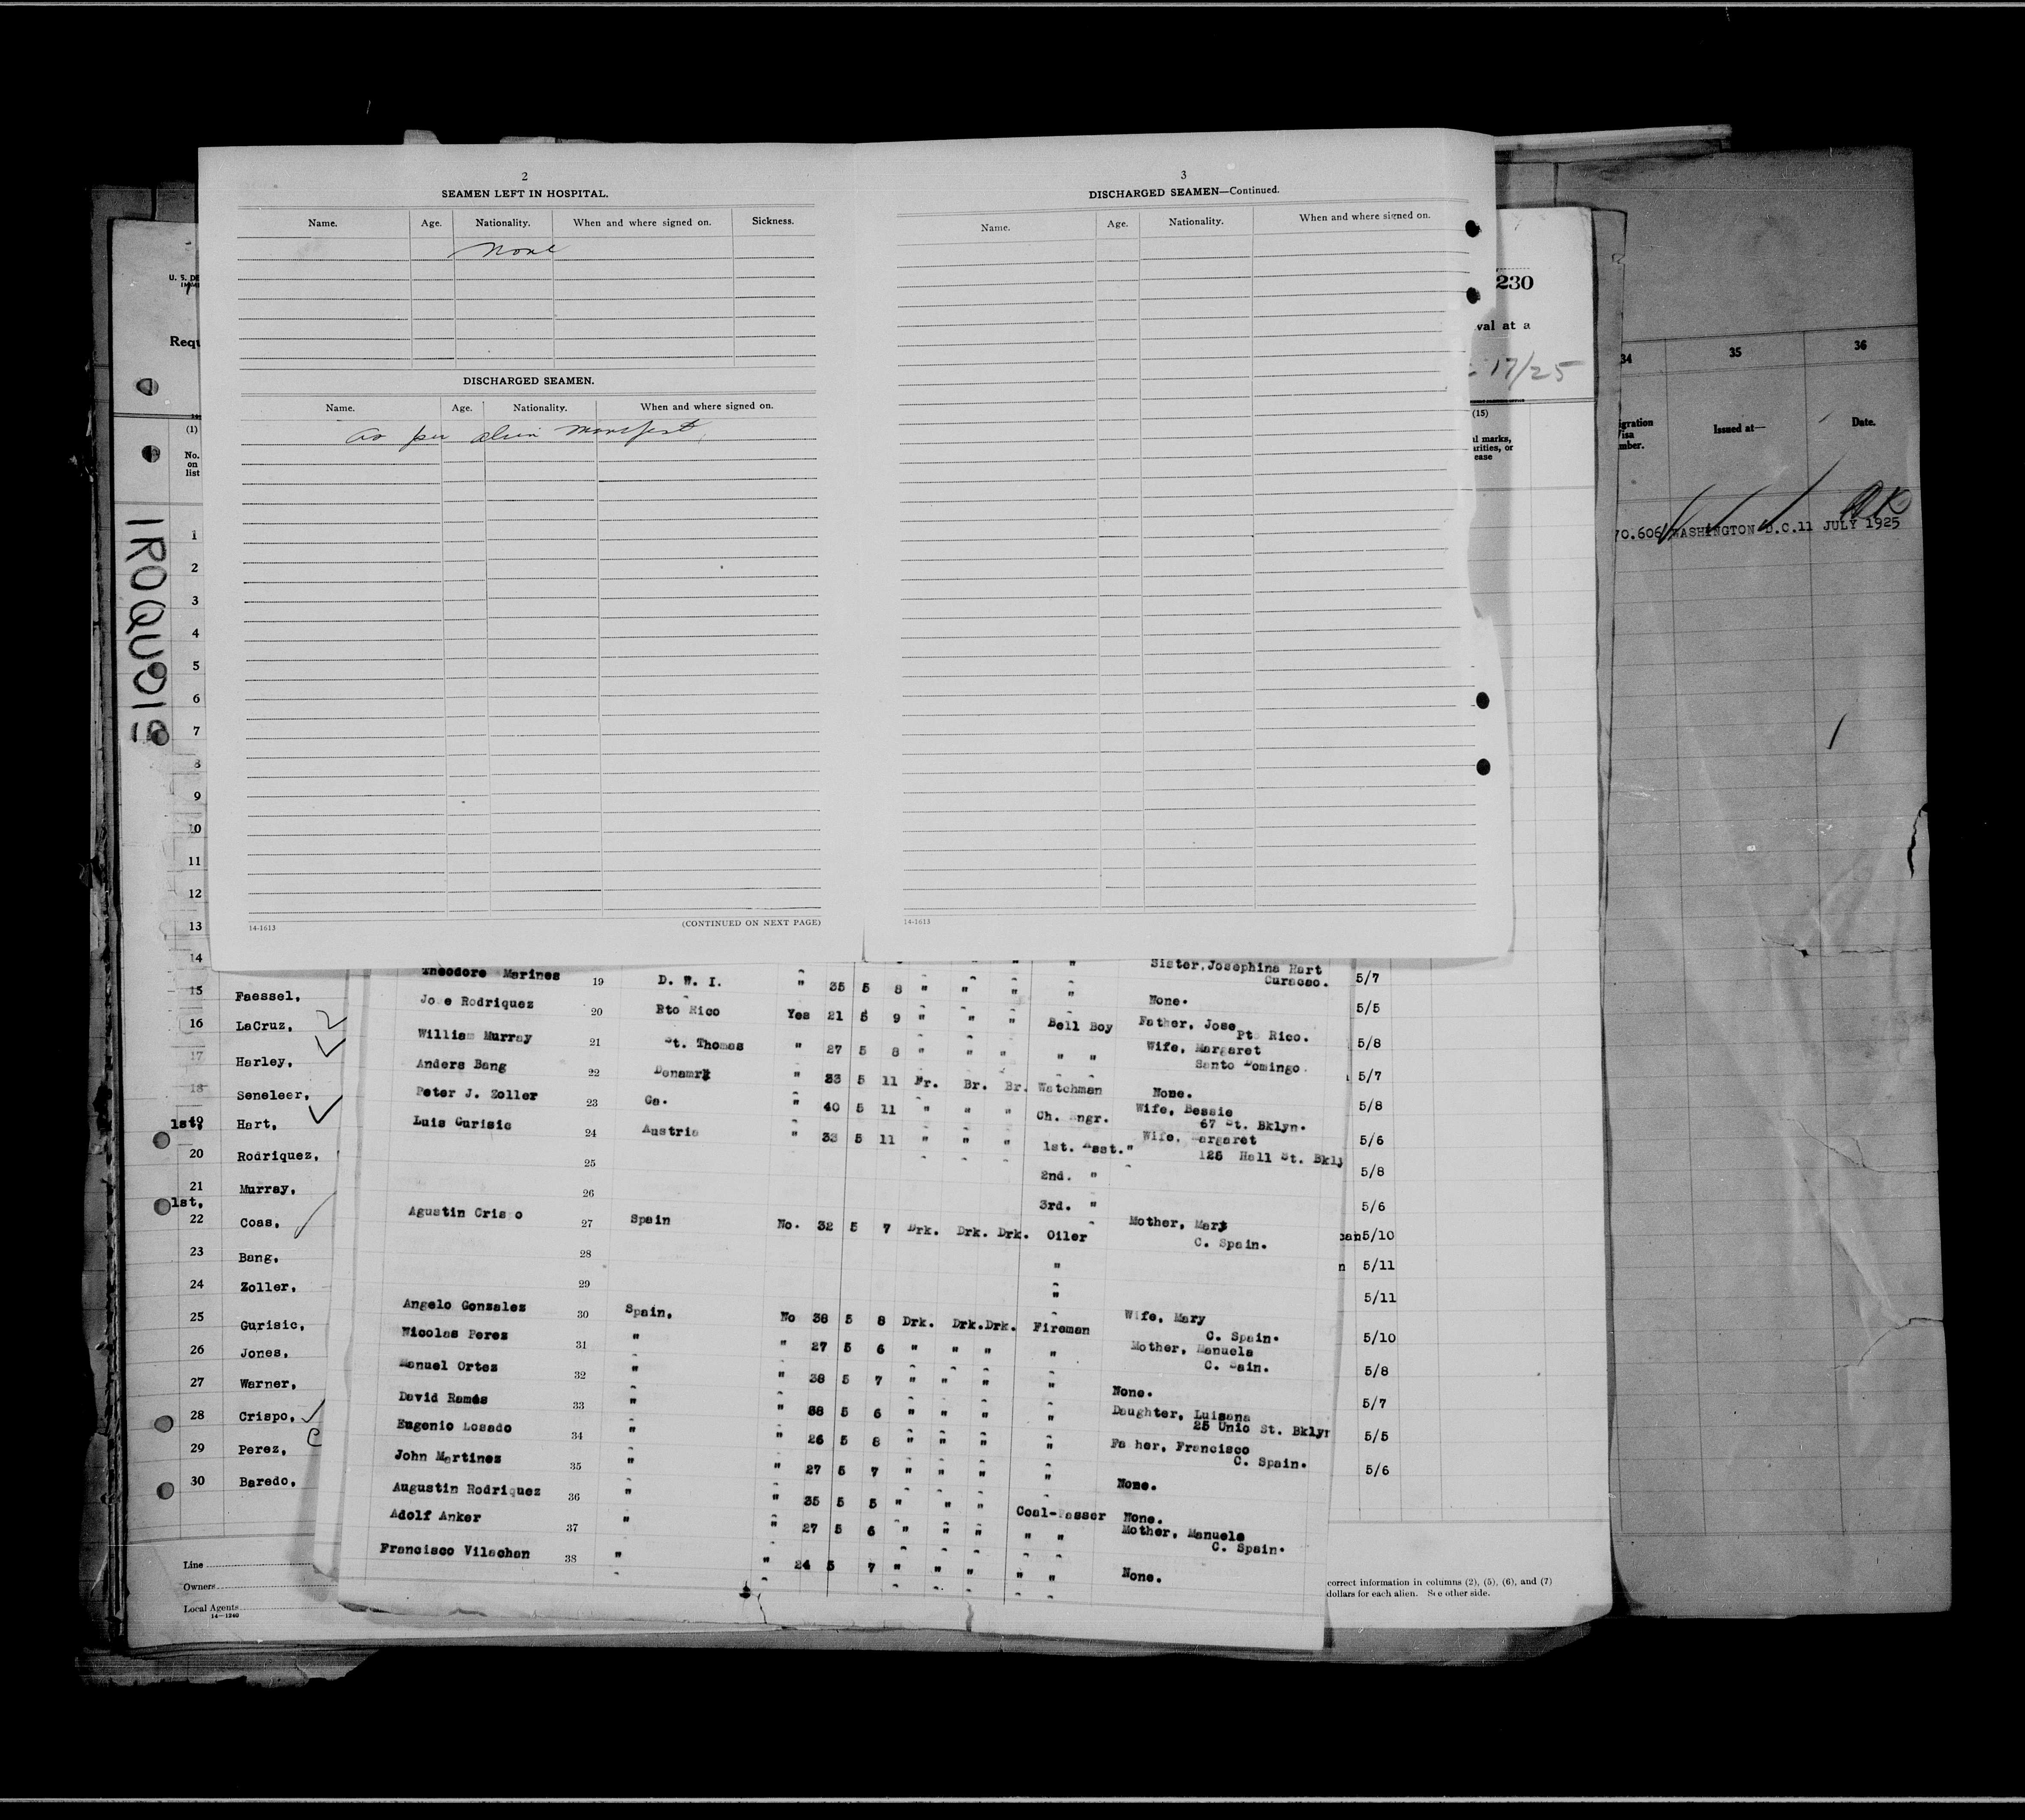 2
SEAMEN LEFT IN HOSPITAL.
Name. Age. Nationality. When and where signed on. Sickness.
None
DISCHARGED SEAMEN.
Name. Age. Nationality. When and where signed on.
as per alien manifest
14-1613 (CONTINUED ON NEXT PAGE)
3
DISCHARGED SEAMEN—Continued.
Name. Age. Nationality. When and where signed on.
14-1613
U. S. DE
IMMI
Requ
(1)
No.
on
list
IROQUOIS
1
2
3
4
5
6
7
8
9
10
11
12
13
14
15 Faessel,
16 LaCruz,
17 Harley,
18 Seneleer,
1st, 19 Hart,
20 Rodriquez,
21 Murray,
1st,
22 Coas,
23 Bang,
24 Zoller,
25 Gurisic,
26 Jones,
27 Warner,
28 Crispo,
29 Perez,
30 Baredo,
Line
Owners
Local Agents
14—1240
" " " Sister,Josephina Hart
Theodore Marines 19 D. W. I. " 35 5 8 " " " " Curacao.
Jose Rodriquez 20 Pto Rico Yes 21 5 9 " " " Bell Boy None.
William Murray 21 St. Thomas " 27 5 8 " " " " " Father, Jose
Pto Rico.
Anders Bang 22 Denamrk " 33 5 11 Fr. Br. Br. Watchman Wife, Margaret
Santo Domingo.
Peter J. Zoller 23 Ga. " 40 5 11 " " " Ch. Engr. None.
Luis Gurisic 24 Austria " 33 5 11 " " " 1st. Asst." Wife, Bessie
67 St. Bklyn.
25 2nd. " Wife, Margaret
125 Hall St. Bkly
26 3rd. "
Agustin Crispo 27 Spain No. 32 5 7 Drk. Drk. Drk. Oiler Mother, Mary
C. Spain.
28 "
29 "
Angelo Gonzales 30 Spain, No 38 5 8 Drk. Drk.Drk. Fireman Wife, Mary
C. Spain.
Nicolas Perez 31 " " 27 5 6 " " " " Mother, Manuela
C. Sain.
Manuel Ortez 32 " " 38 5 7 " " " " None.
David Rames 33 " " 38 5 6 " " " " Daughter, Luisana
25 Unio St. Bklyn
Eugenio Losado 34 " " 26 5 8 " " " " Father, Francisco
C. Spain.
John Martines 35 " " 27 5 7 " " " " None.
Augustin Rodriquez 36 " " 35 5 5 " " " Coal-Passer None.
Adolf Anker 37 " " 27 5 6 " " " " " Mother, Manuela
C. Spain.
Francisco Vilachan 38 " " 24 5 7 " " " " " None.
230
val at a
17/25
(15)
al marks,
arities, or
ease
5/7
5/5
5/8
5/7
5/8
5/6
5/8
5/6
can5/10
n 5/11
5/11
5/10
5/8
5/7
5/5
5/6
correct information in columns (2), (5), (6), and (7)
dollars for each alien. See other side.
34 35 36
igration
Visa
mber. Issued at— Date.
70.606 WASHINGTON D.C.11 JULY 1925